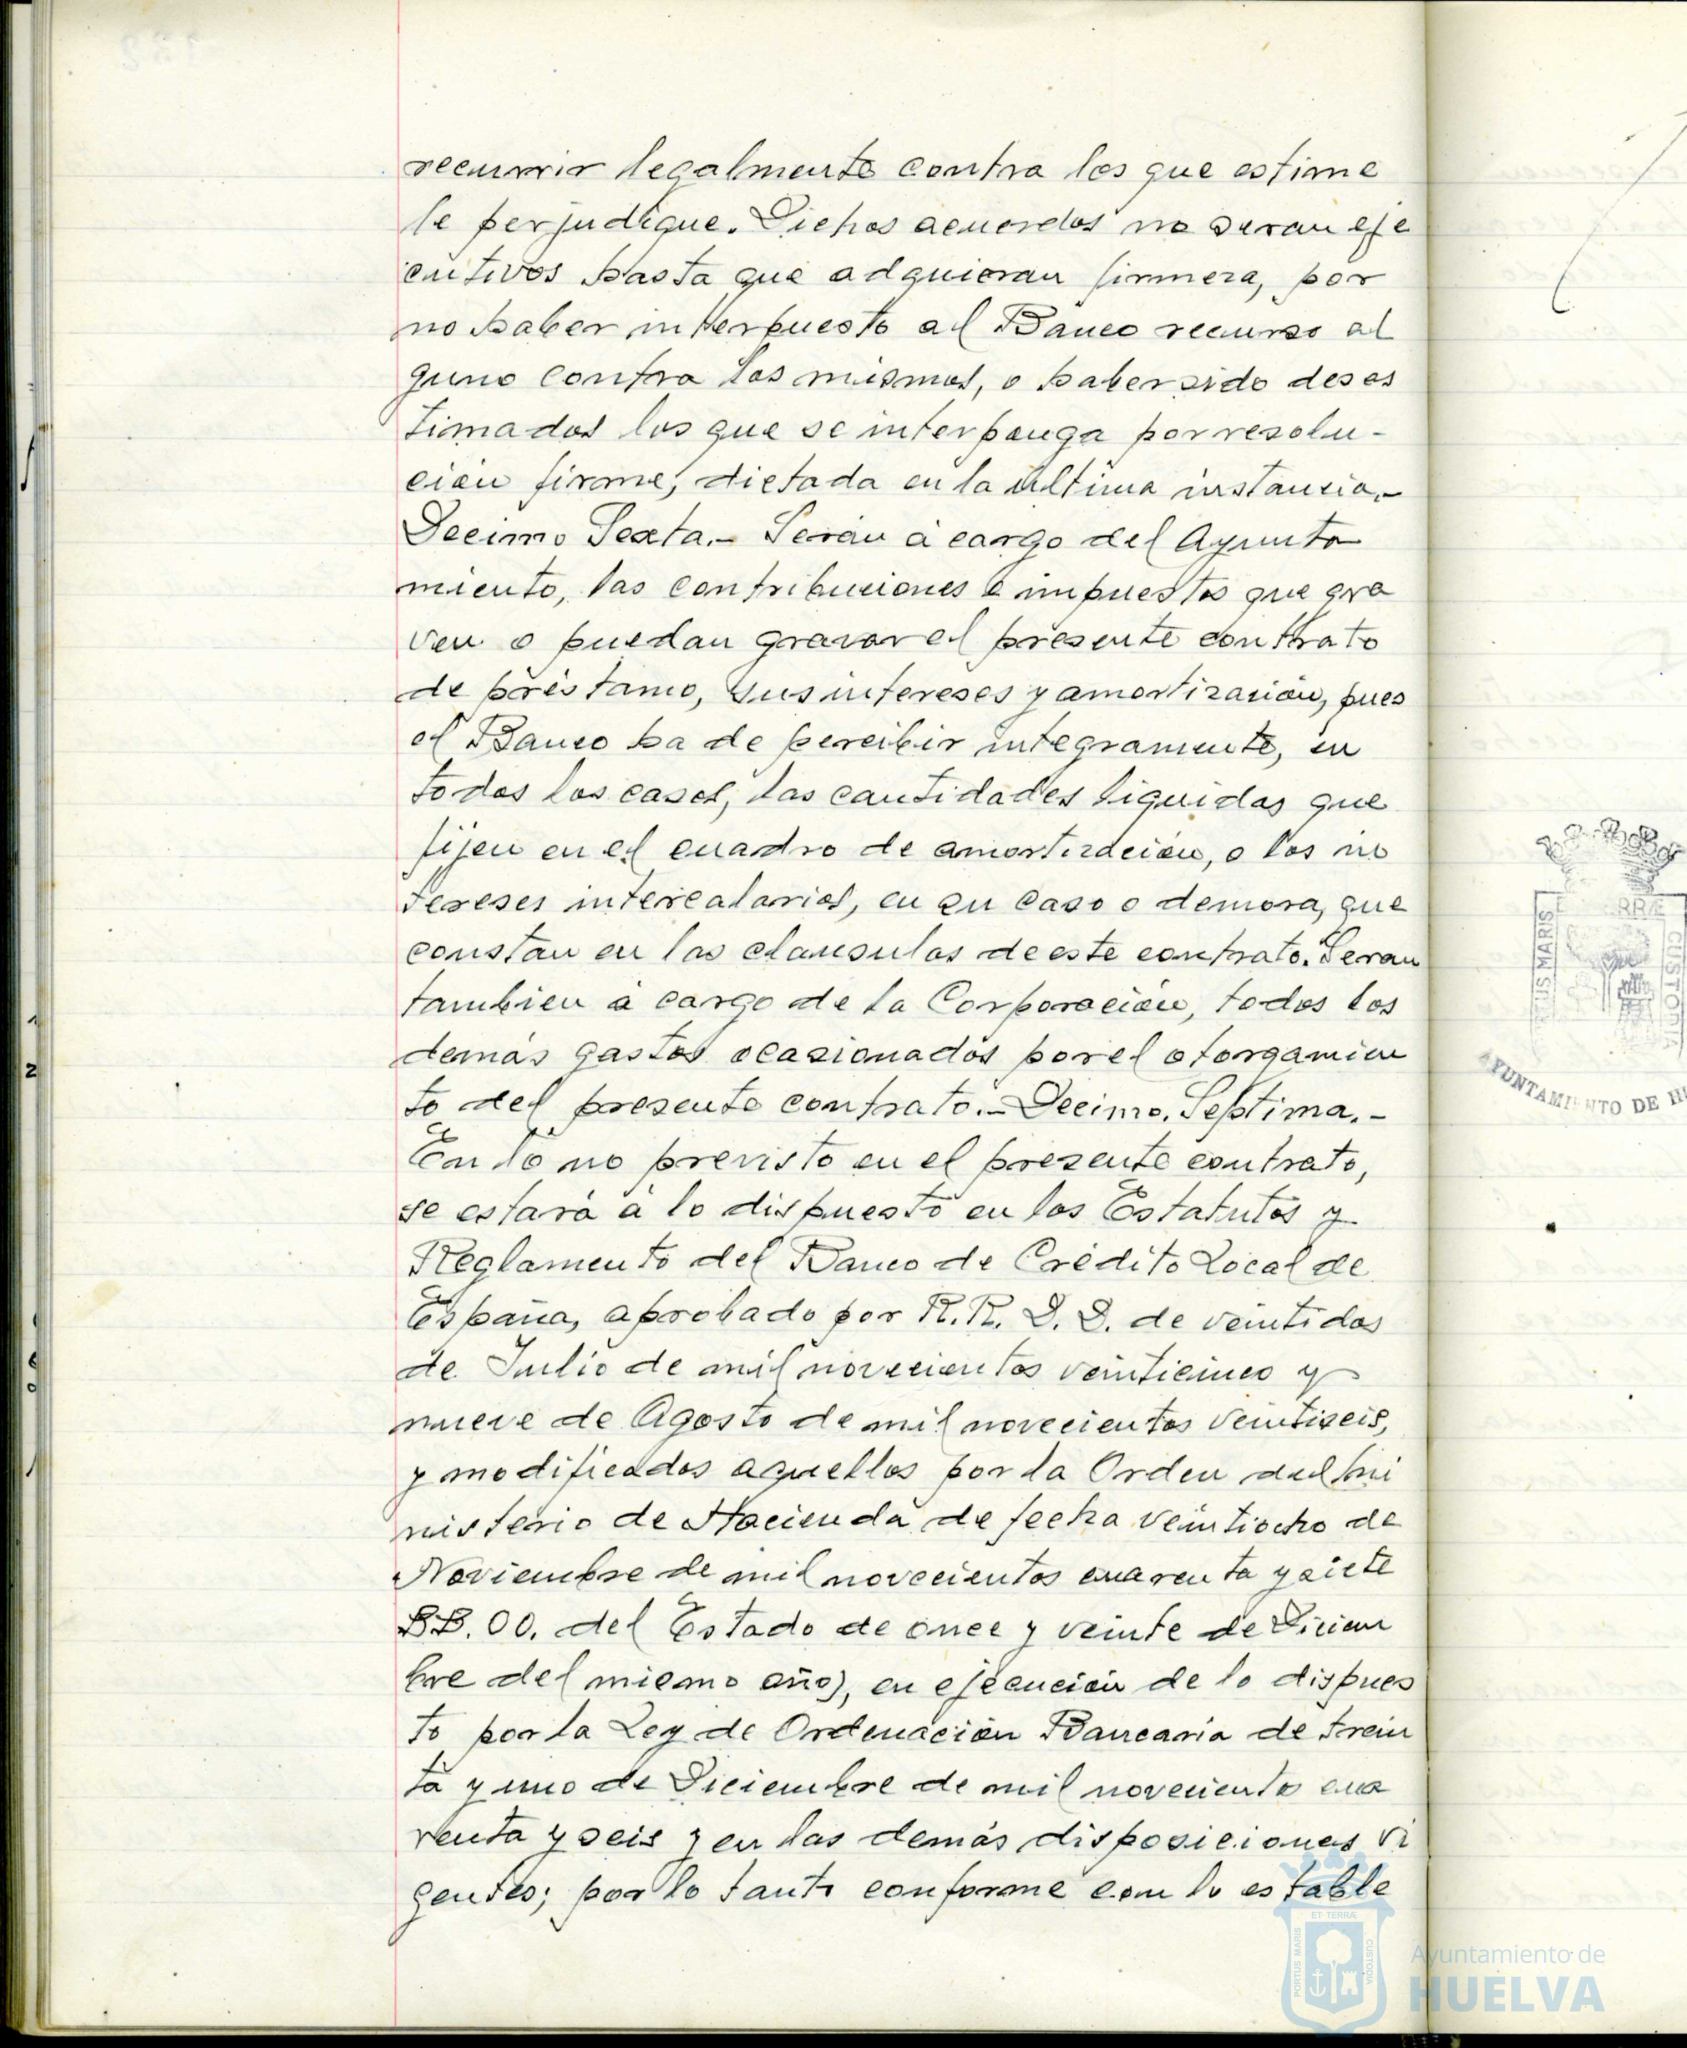 recurrir legalmente contra los que estime
le perjudique. Dichos acuerdos no seran eje
cutivos hasta que adquieran firmeza, por
no haber interpuesto al Banco recurso al
guno contra los mismos, o haber sido deses
timados los que se interponga por resolu-
ción firme, dictada en la última instancia.-
Decimo Sexta.- Serán á cargo del Ayunta
miento, las contribuciones e impuestos que gra
ven o puedan gravar el presente contrato
de préstamo, sus intereses y amortización, pues
el Banco ha de percibir integramente, en
todos los casos, las cantidades liquidas que
fijen en el cuadro de amortización, o los in
tereses intercalarios, en su caso o demora, que
constan en las clausulas de este contrato. Seran
tambien á cargo de la Corporación, todos los
demás gastos ocasionados por el otorgamien
to del presente contrato.- Decimo Septima.-
En lo no previsto en el presente contrato,
se estará á lo dispuesto en los Estatutos y
Reglamento del Banco de Crédito Local de
España, aprobado por R.R. D.D. de veintidos
de Julio de mil novecientos veinticinco y
nueve de Agosto de mil novecientos veintiseis,
y modificados aquellos por la Orden del Mi
nisterio de Hacienda de fecha veintiocho de
Noviembre de mil novecientos cuarenta y siete
BB. OO. del Estado de once y veinte de Diciem
bre del mismo año), en ejecución de lo dispues
to por la Ley de Ordenación Bancaria de trein
ta y uno de Diciembre de mil novecientos cua
renta y seis y en las demás disposiciones vi
gentes; por lo tanto conforme con lo estable
PORTUS MARIS
ET TERRÆ
CUSTODIA
Ayuntamiento de
HUELVA
TUS MARIS
RRÆ
CUSTODIA
AYUNTAMIENTO DE HU